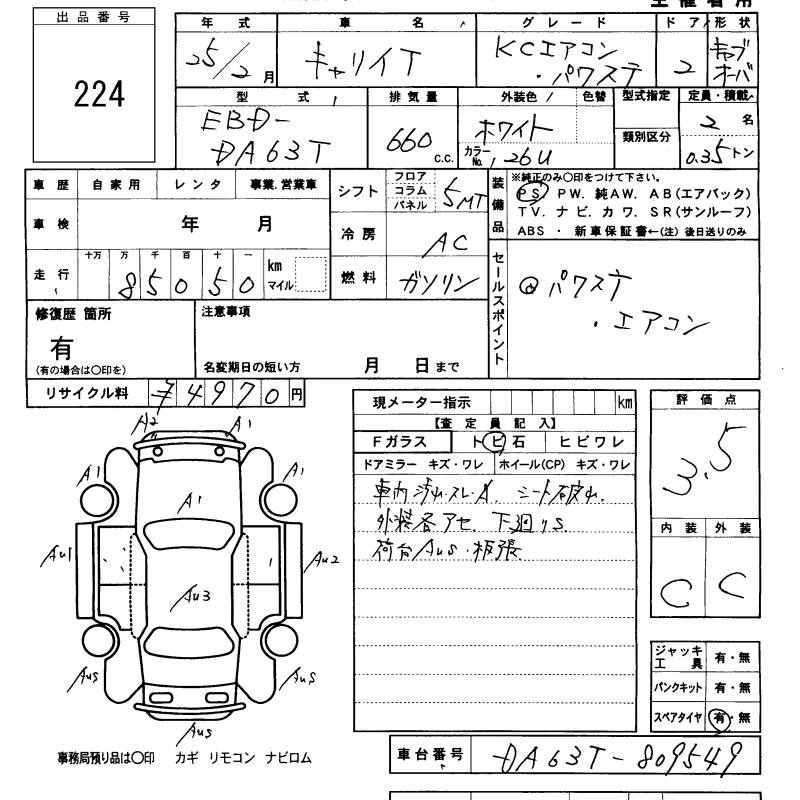 出品番号
224
年式 車名 グレード ドア 形状
25/2月 キャリイT KCエアコン・パワステ 2 キャブオーバ
型式 排気量 外装色 色替 型式指定 定員・積載
EBD-DA63T 660 c.c. ホワイト カラーNo. 26U 類別区分 2名 0.35トン
車歴 自家用 レンタ 事業.営業車
車検 年 月
走行 十万 万 千 百 十 一 km マイル
85050
シフト フロア コラム パネル 5MT
冷房 AC
燃料 ガソリン
装備品
※純正のみ〇印をつけて下さい。
PS. PW. 純AW. AB(エアバック)
TV. ナビ. カワ. SR(サンルーフ)
ABS ・ 新車保証書←(注) 後日送りのみ
セールスポイント
パワステ
・エアコン
修復歴 箇所
有
(有の場合は〇印を)
注意事項
名変期日の短い方 月 日まで
リサイクル料 ¥4970円
現メーター指示 km
【査定員記入】
Fガラス トビ石 ヒビワレ
ドアミラー キズ・ワレ ホイール(CP) キズ・ワレ
車内汚れ・スレ・A. シート破れ.
外装各アセ. 下廻りS.
荷台AuS・板張
評価点
3.5
内装 外装
C C
ジャッキ工具 有・無
パンクキット 有・無
スペアタイヤ 有・無
A2 A1
A1 A1
A1
Au1 Au2
Au3
AuS AuS
AuS
事務局預り品は〇印 カギ リモコン ナビロム
車台番号 DA63T-809549